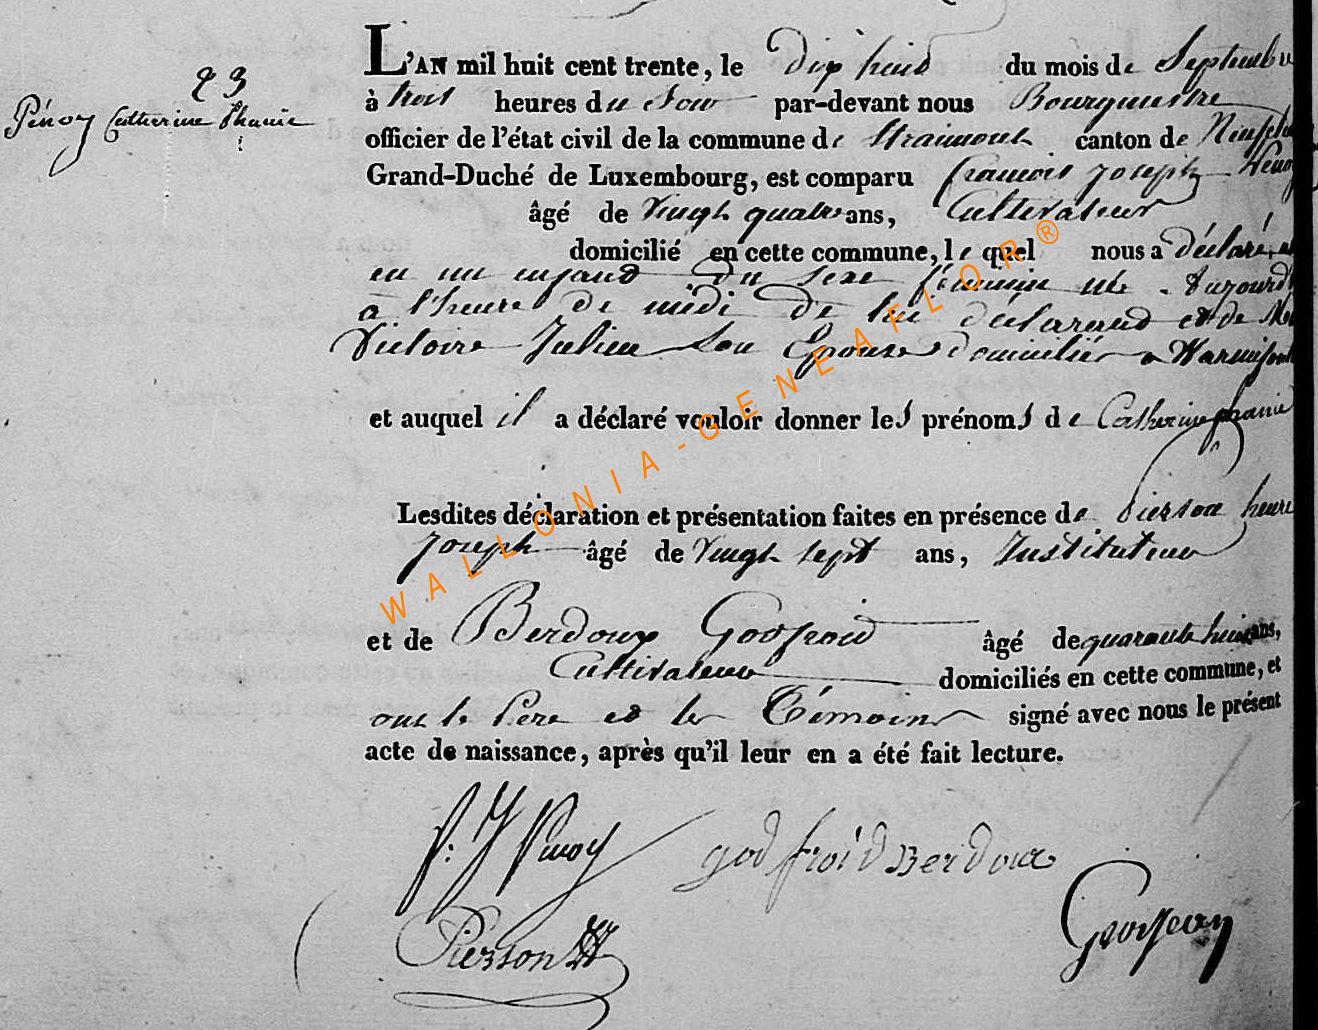 23
Pénoy Catherine Phanie
L'AN mil huit cent trente, le Dix huit du mois de Septembre
à trois heures du Soir par-devant nous Bourgmestre
officier de l'état civil de la commune de Straimont canton de
Grand-Duché de Luxembourg, est comparu François Joseph Pénoy
âgé de Vingt quatre ans, Cultivateur
domicilié en cette commune, lequel nous a déclaré
eu un enfant du sexe féminin né
à l'heure de midi de lui déclarant et de
Victoire Julien Son Epouse domiciliés a
et auquel il a déclaré vouloir donner les prénoms de Catherine phanie
Lesdites déclaration et présentation faites en présence de Pierson henri
Joseph âgé de Vingt sept ans, Instituteur
et de Berdoux Godfroid âgé de quarante huit ans,
Cultivateur domiciliés en cette commune, et
ont le Père et les Témoins signé avec nous le présent
acte de naissance, après qu'il leur en a été fait lecture.
f. J Pénoy godfroid Berdoux
Pierson
WALLONIA-GENEAFLOR®